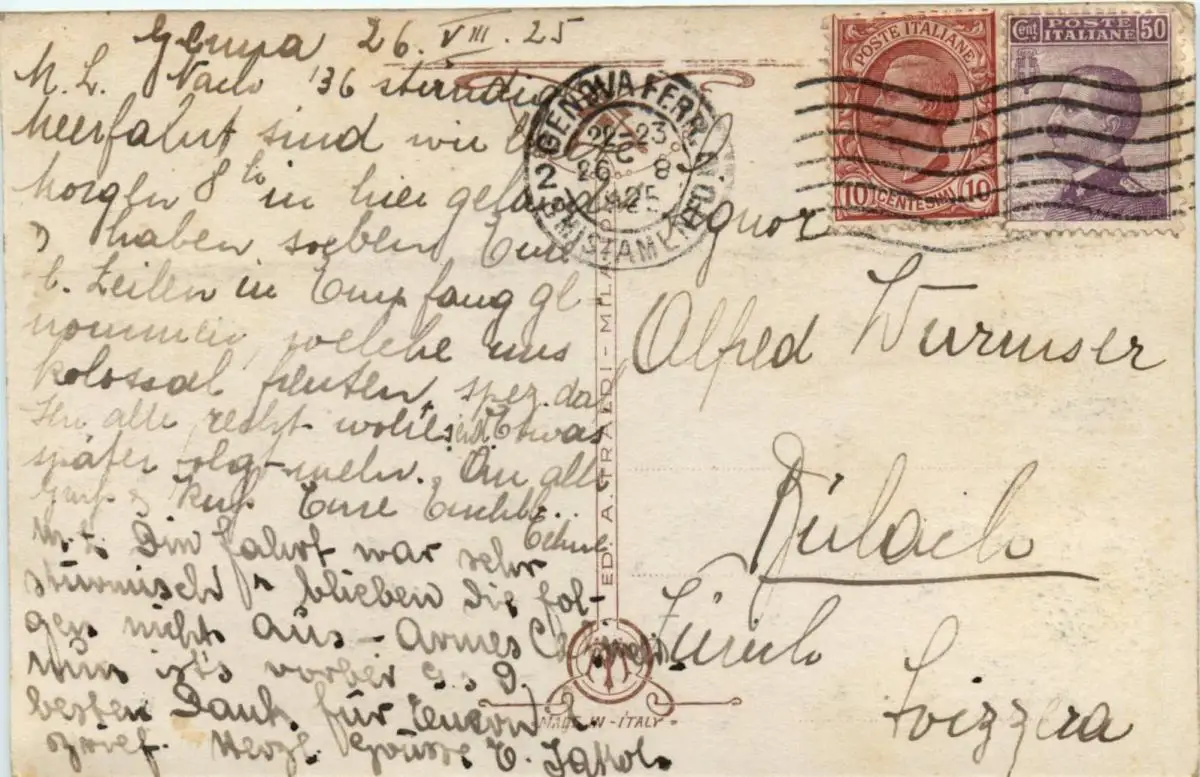 Genua 26. VIII. 25
M. L. Nach 36 stündig
Meerfahrt sind wir
Morgen 8 in hier
haben soeben Eure
l. Zeilen in Empfang ge
nommen, welche uns
kolossal freuten, spez. da
Ihr alle recht wohl seid. Etwas
später folgt mehr. An alle
Eure
M. L. Die Fahrt war sehr
stürmisch & blieben die fol-
gen nicht aus - Armes
nun ist's vorbei G. s. D.
besten Dank für Euern
Brief. Herzl. Grüsse E. Jakob.
Signor
Alfred Wurmser
Bülach
Zürich
Svizzera
GENOVA FERROVIA
22-23
26 8
1925
2
POSTE ITALIANE
10 CENTESIMI 10
Cent. POSTE ITALIANE 50
ED. A. TRALDI - MILANO
MADE IN ITALY